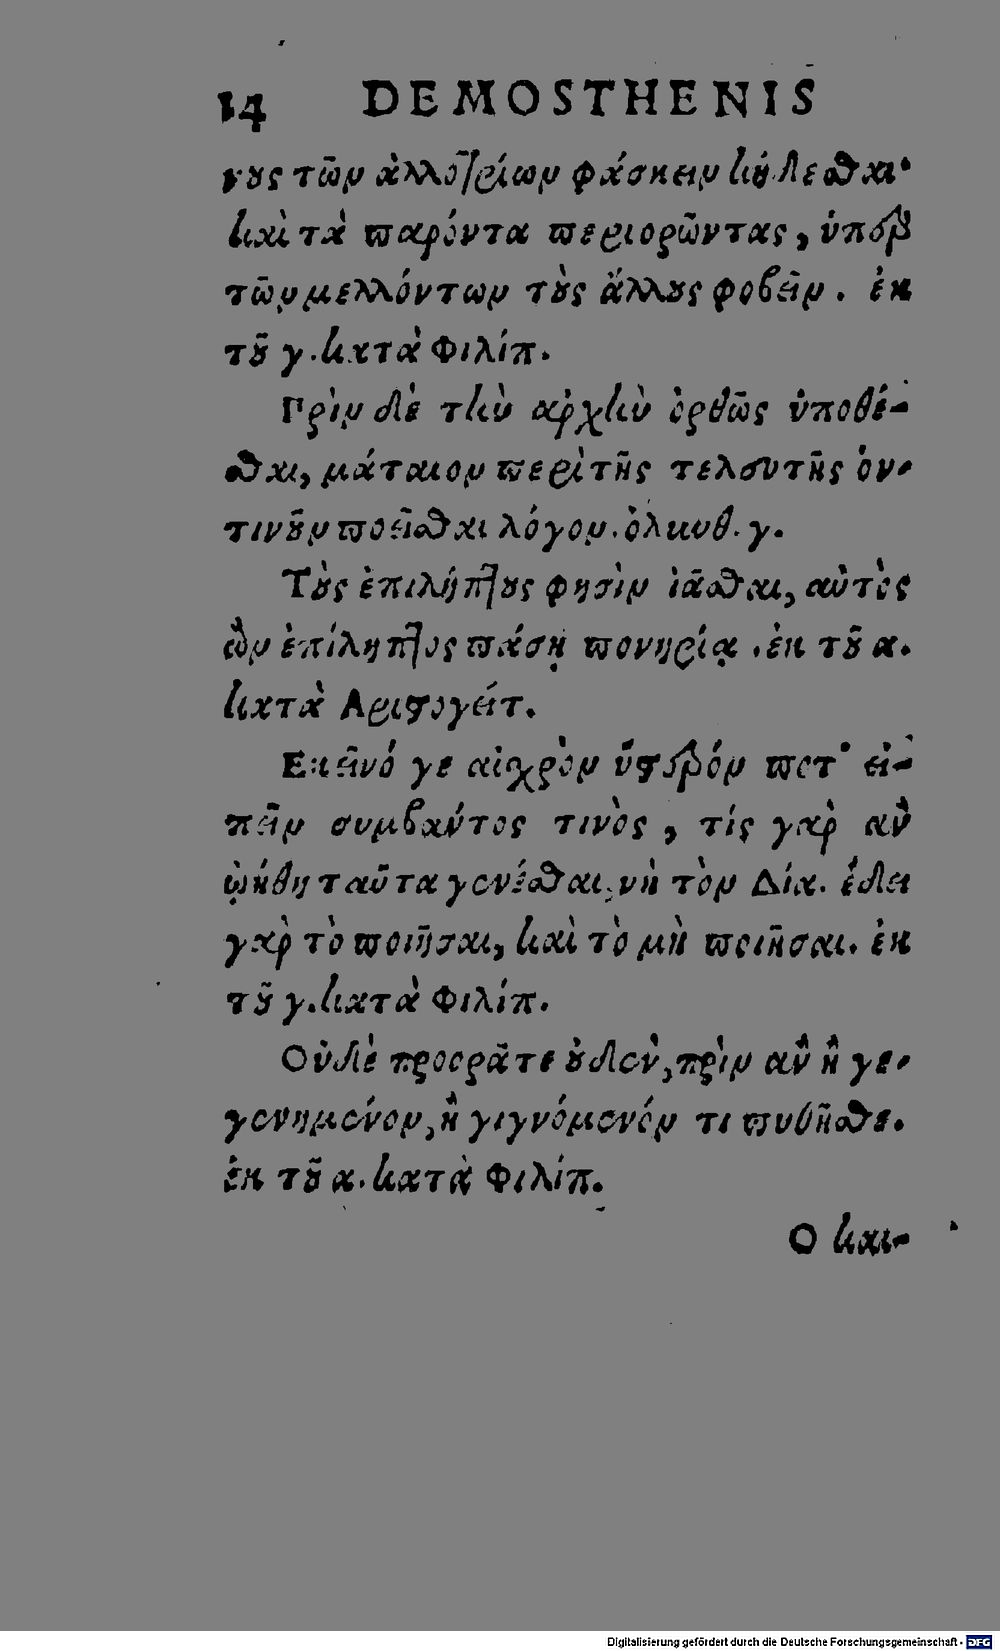 14 DEMOSTHENIS
νους τῶν ἀλλοτρίων φάσκειν κήδεσθαι·
καὶ τὰ παρόντα περιορῶντας, ὑπὲρ
τῶν μελλόντων τοὺς ἄλλους φοβεῖν. ἐκ
τοῦ γ. κατὰ Φιλίπ.
Πρὶν δὲ τὴν ἀρχὴν ὀρθῶς ὑποθέ-
σθαι, μάταιον περὶ τῆς τελευτῆς ὁν-
τινοῦν ποιεῖσθαι λόγον. ὀλυνθ. γ.
Τοὺς ἐπιλήπτους φησὶν ἰᾶσθαι, αὐτὸς
ὢν ἐπίληπτος πάσῃ πονηρίᾳ. ἐκ τοῦ α.
κατὰ Αριστογείτ.
Εκεῖνό γε αἰσχρὸν ὕστερόν ποτ' εἰ-
πεῖν συμβάντος τινὸς, τίς γὰρ ἂν
ᾠήθη ταῦτα γενέσθαι, νὴ τὸν Δία. ἔδει
γὰρ τὸ ποιῆσαι, καὶ τὸ μὴ ποιῆσαι. ἐκ
τοῦ γ. κατὰ Φιλίπ.
Οὐδὲ προορᾶτε οὐδὲν, πρὶν ἂν ἢ γε-
γενημένον, ἢ γιγνόμενόν τι πυθῆσθε.
ἐκ τοῦ α. κατὰ Φιλίπ.
Ο και-
Digitalisierung gefördert durch die Deutsche Forschungsgemeinschaft - DFG